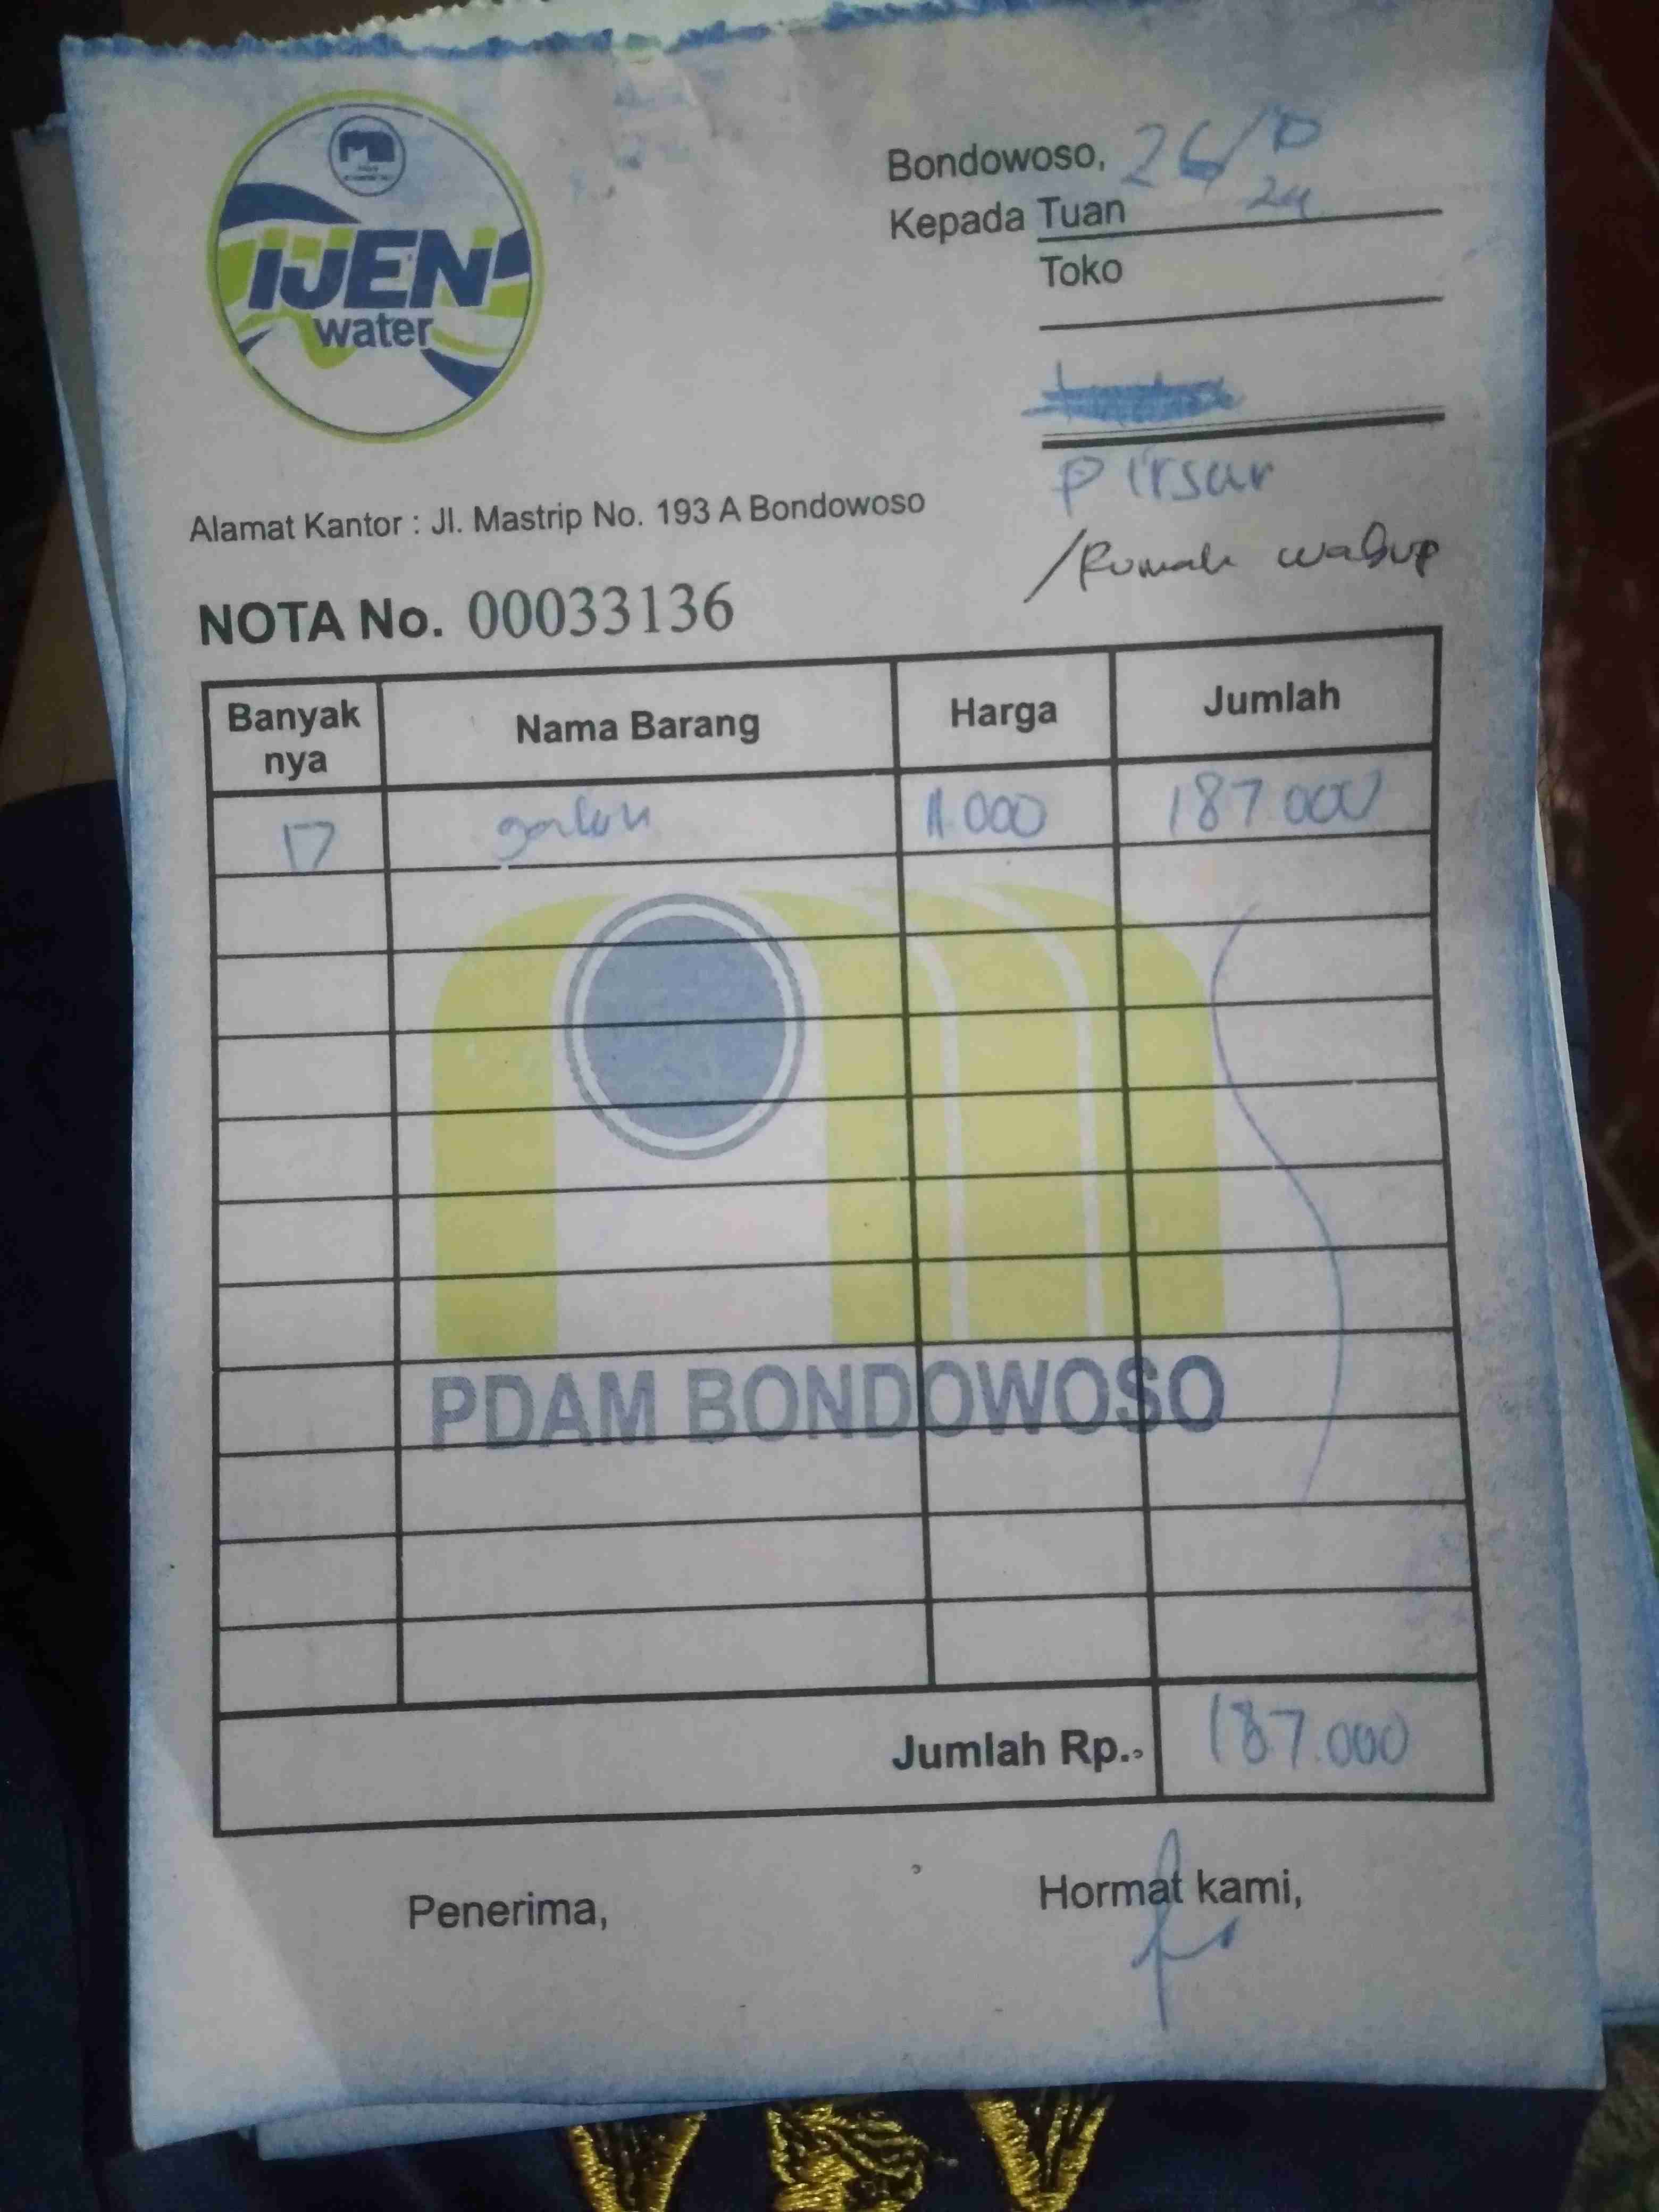 IJEN
water
Bondowoso, 26/10
24
Kepada Tuan
Toko
P Irsan
/Rumah wabup
Alamat Kantor : Jl. Mastrip No. 193 A Bondowoso
NOTA No. 00033136
Banyak nya Nama Barang Harga Jumlah
17 galon 11.000 187.000
PDAM BONDOWOSO
Jumlah Rp.. 187.000
Penerima, Hormat kami,